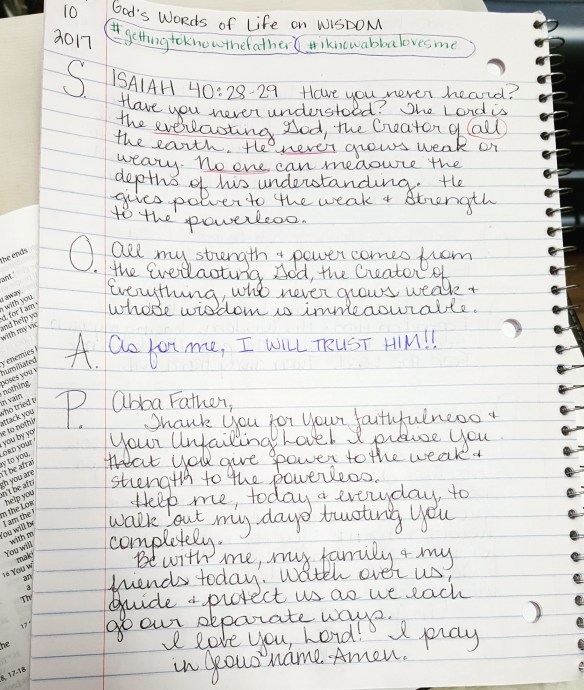 10
2017
God's Words of Life on WISDOM
#gettingtoknowthefather #iknowabbalovesme
S. ISAIAH 40:28-29 Have you never heard?
Have you never understood? The Lord is
the everlasting God, the Creator of all
the earth. He never grows weak or
weary. No one can measure the
depths of his understanding. He
gives power to the weak & strength
to the powerless.
O. All my strength & power comes from
the Everlasting God, the Creator of
Everything, who never grows weak &
whose wisdom is immeasurable.
A. As for me, I WILL TRUST HIM!!
P. Abba Father,
Thank You for Your faithfulness &
Your Unfailing Love! I praise You
that You give power to the weak &
strength to the powerless.
Help me, today & everyday, to
walk out my days trusting You
completely.
Be with me, my family & my
friends today. Watch over us,
guide & protect us as we each
go our separate ways.
I love You, Lord! I pray
in Jesus' name. Amen.
the ends
away.
with you
d, for I am
and help yo
with my vic
enemies
humiliated
poses you
nothing.
in vain
who tried t
attack you
to nothin
you by yo
LORD your
ay to you,
't be afrai
gh you are
n't be afr
help you
m the LOR
I am the
You will be
with m
You will
mak
16 You w
an
a
Th
17
the
8, 17-18